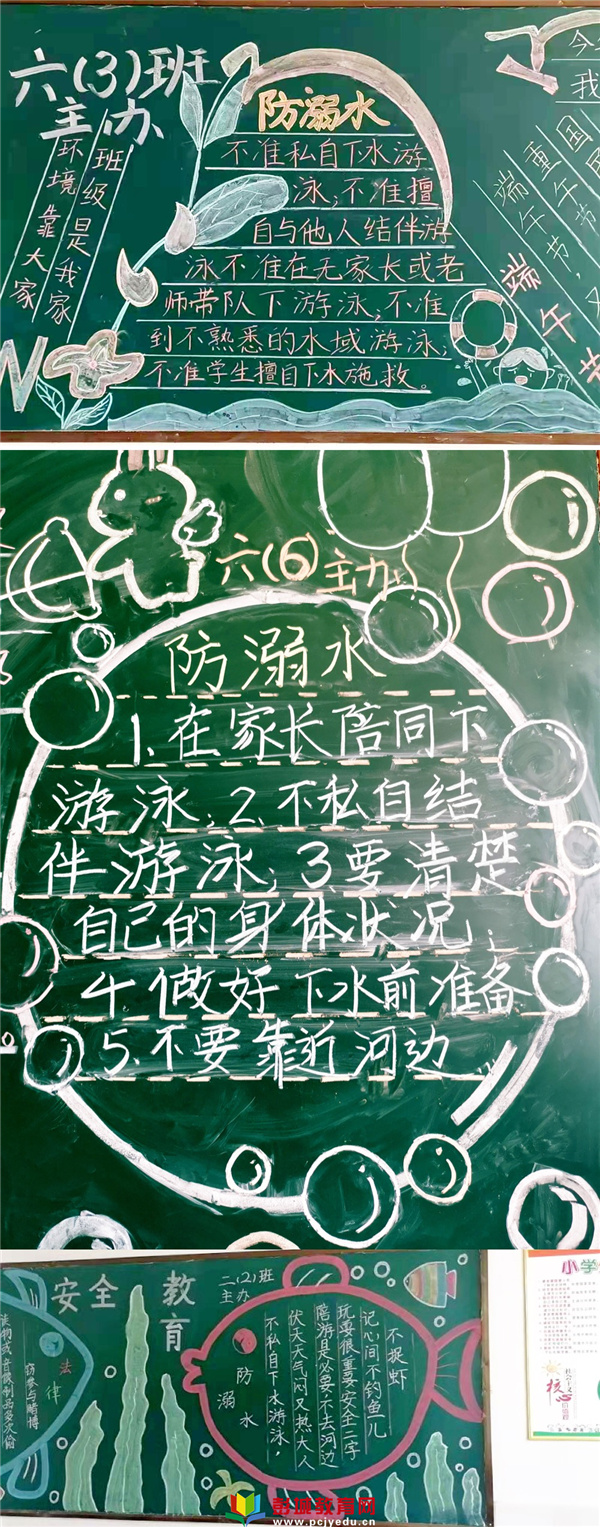 六(3)班
主办
班级是我家
环境靠大家
防溺水
不准私自下水游
泳;不准擅
自与他人结伴游
泳不准在无家长或老
师带队下游泳;不准
到不熟悉的水域游泳;
不准学生擅自下水施救。
今
我
国
重午节
端午节,又
端午节
六(6)主办
防溺水
1.在家长陪同下
游泳;2.不私自结
伴游泳;3.要清楚
自己的身体状况;
4.做好下水前准备
5.不要靠近河边
安全教育
二(2)班
主办
法律
窃参与赌博
读物或音像制品多次偷
防溺水
不捉虾
记心间不钓鱼儿
玩耍很重要安全二字
陪游具必要不去河边
伏天天气闷又热大人
不私自下水游泳,
小学
社会主义
核心
价值观
彭城教育网
www.pcjyedu.cn